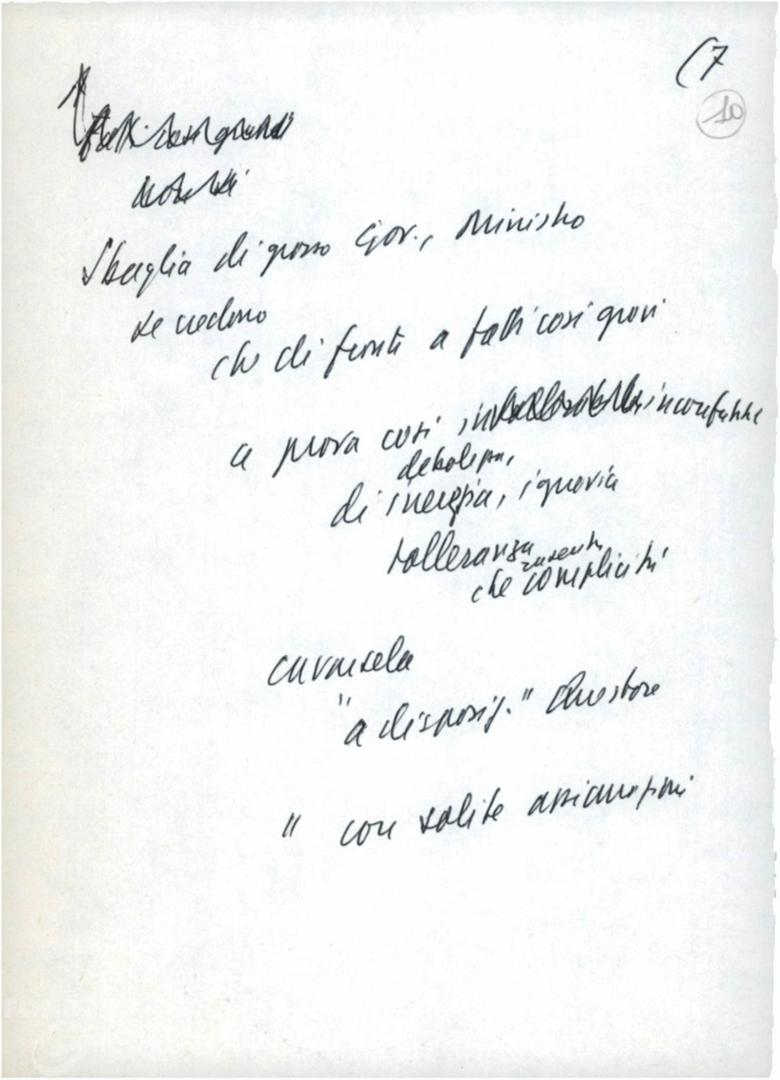 (7
10
Sbaglia di grosso Gov., Ministro
se credono
che di fronte a fatti così gravi
a prova così inconfutabile
debolezza,
di inerzia, ignavia
tolleranza
che complicità
cavarsela
"a disposiz." Questore
" con solite assicurazioni